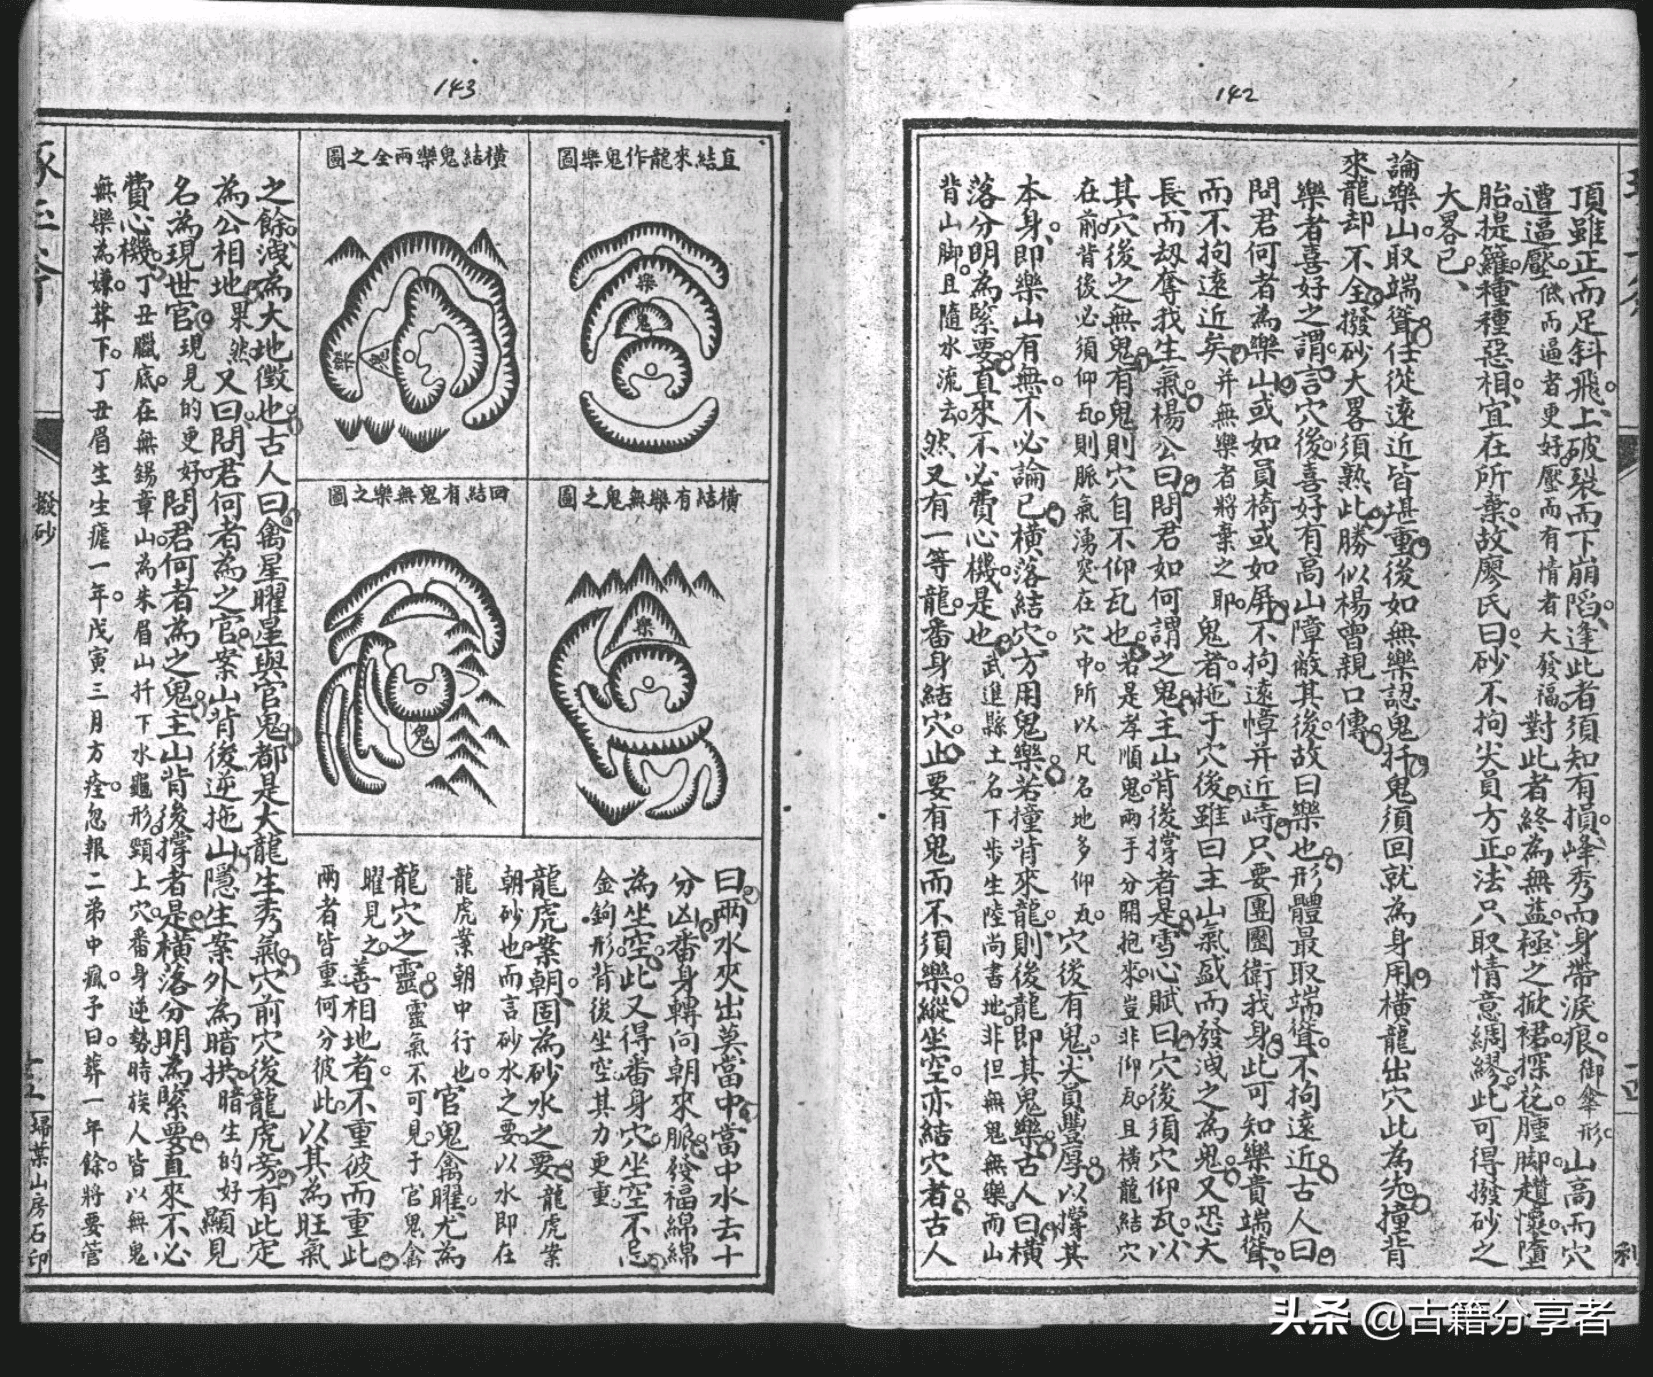 142
頂雖正而足斜飛上破裂而下崩陷逢此者須知有損峰秀而身帶淚痕御傘形山高而穴
遭逼壓低而逼者更好壓而有情者大發福對此者終為無益極之掀裙探花腫脚趲懷墮
胎提籮種種惡相宜在所棄故廖氏曰砂不拘尖員方正法只取情意綢繆此可得撥砂之
大畧已
論樂山取端聳任從遠近皆堪重後如無樂認鬼扦鬼須回就為身用橫龍出穴此為先撞背
來龍却不全撥砂大畧須熟此勝似楊曾親口傳
樂者喜好之謂言穴後喜好有高山障蔽其後故曰樂也形體最取端聳不拘遠近古人曰
問君何者為樂山或如員椅或如屏不拘遠幛并近峙只要團團衛我身此可知樂貴端聳
而不拘遠近矣并無樂者將棄之耶鬼者拖于穴後雖曰主山氣盛而發洩之為鬼又恐大
長而刼奪我生氣楊公曰問君如何謂之鬼主山背後撐者是雪心賦曰穴後須穴仰瓦以
其穴後之無鬼有鬼則穴自不仰瓦也若是孝順鬼兩手分開抱來豈非仰瓦且橫龍結穴
在前背後必須仰瓦則脈氣湧突在穴中所以凡名地多仰瓦穴後有鬼尖員豐厚以撐其
本身即樂山有無不必論已橫落結穴方用鬼樂若撞背來龍則後龍即其鬼樂古人曰橫
落分明為緊要直來不必費心機是也武進縣土名下步生陸尚書地非但無鬼無樂而山
背山脚且隨水流去然又有一等龍番身結穴止要有鬼而不須樂縱坐空亦結穴者古人
利
143
直結來龍作鬼樂圖
樂
鬼
橫結鬼樂兩全之圖
樂
鬼
橫結有樂無鬼之圖
樂
回結有鬼無樂之圖
鬼
曰兩水夾出莫當中當中水去十
分凶番身轉向朝來脈發福綿綿
為坐空此又得番身穴坐空不忌
金鉤形背後坐空其力更重
龍虎案朝固為砂水之要龍虎案
朝砂也而言砂水之要以水即在
龍虎案朝中行也官鬼禽曜尤為
龍穴之靈靈氣不可見于官鬼禽
曜見之善相地者不重彼而重此
兩者皆重何分彼此以其為旺氣
之餘洩為大地徵也古人曰禽星曜星與官鬼都是大龍生秀氣穴前穴後龍虎旁有此定
為公相地果然又曰問君何者為之官案山背後逆拖山隱生案外為暗拱暗生的好顯見
名為現世官現見的更好問君何者為之鬼主山背後撐者是橫落分明為緊要直來不必
費心機丁丑臘底在無錫章山為朱眉山扦下水龜形頸上穴番身逆勢時族人皆以無鬼
無樂為嫌葬下丁丑眉生生瘧一年戊寅三月方痊忽報二弟中瘋予曰葬一年餘將要管
撥砂
掃葉山房石印
头条 @古籍分享者